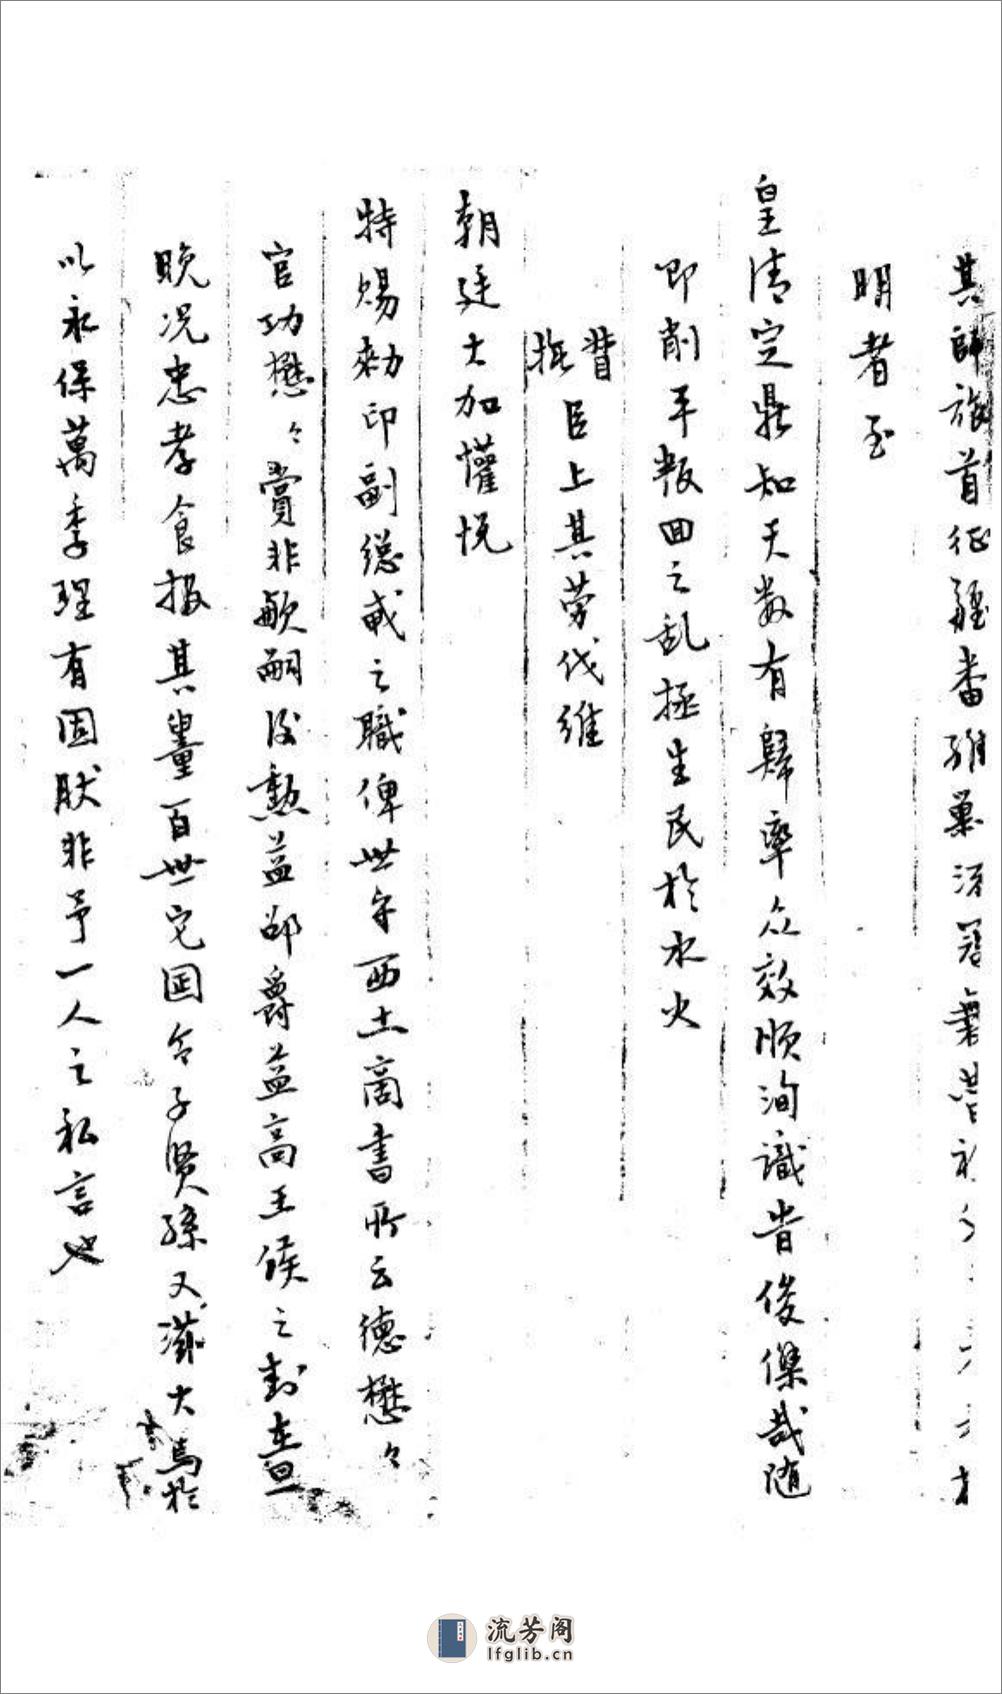 其師旅首征疆番殫巢
明者至
皇清定鼎知天数有歸率众效順洵識者俊傑哉随
即削平叛回之乱拯生民於水火
督撫臣上其劳伐维
朝廷大加懽悦
特賜勅印副總戎之職俾世守西土啇書所云德懋々
官功懋々賞非欤嗣後勲益邵爵益高王侯之封直旦
晚况忠孝食报其量百世宅囯令子賢孫又凝大焉於
以永保萬季理有固肰非予一人之私言也
流芳阁
lfglib.cn